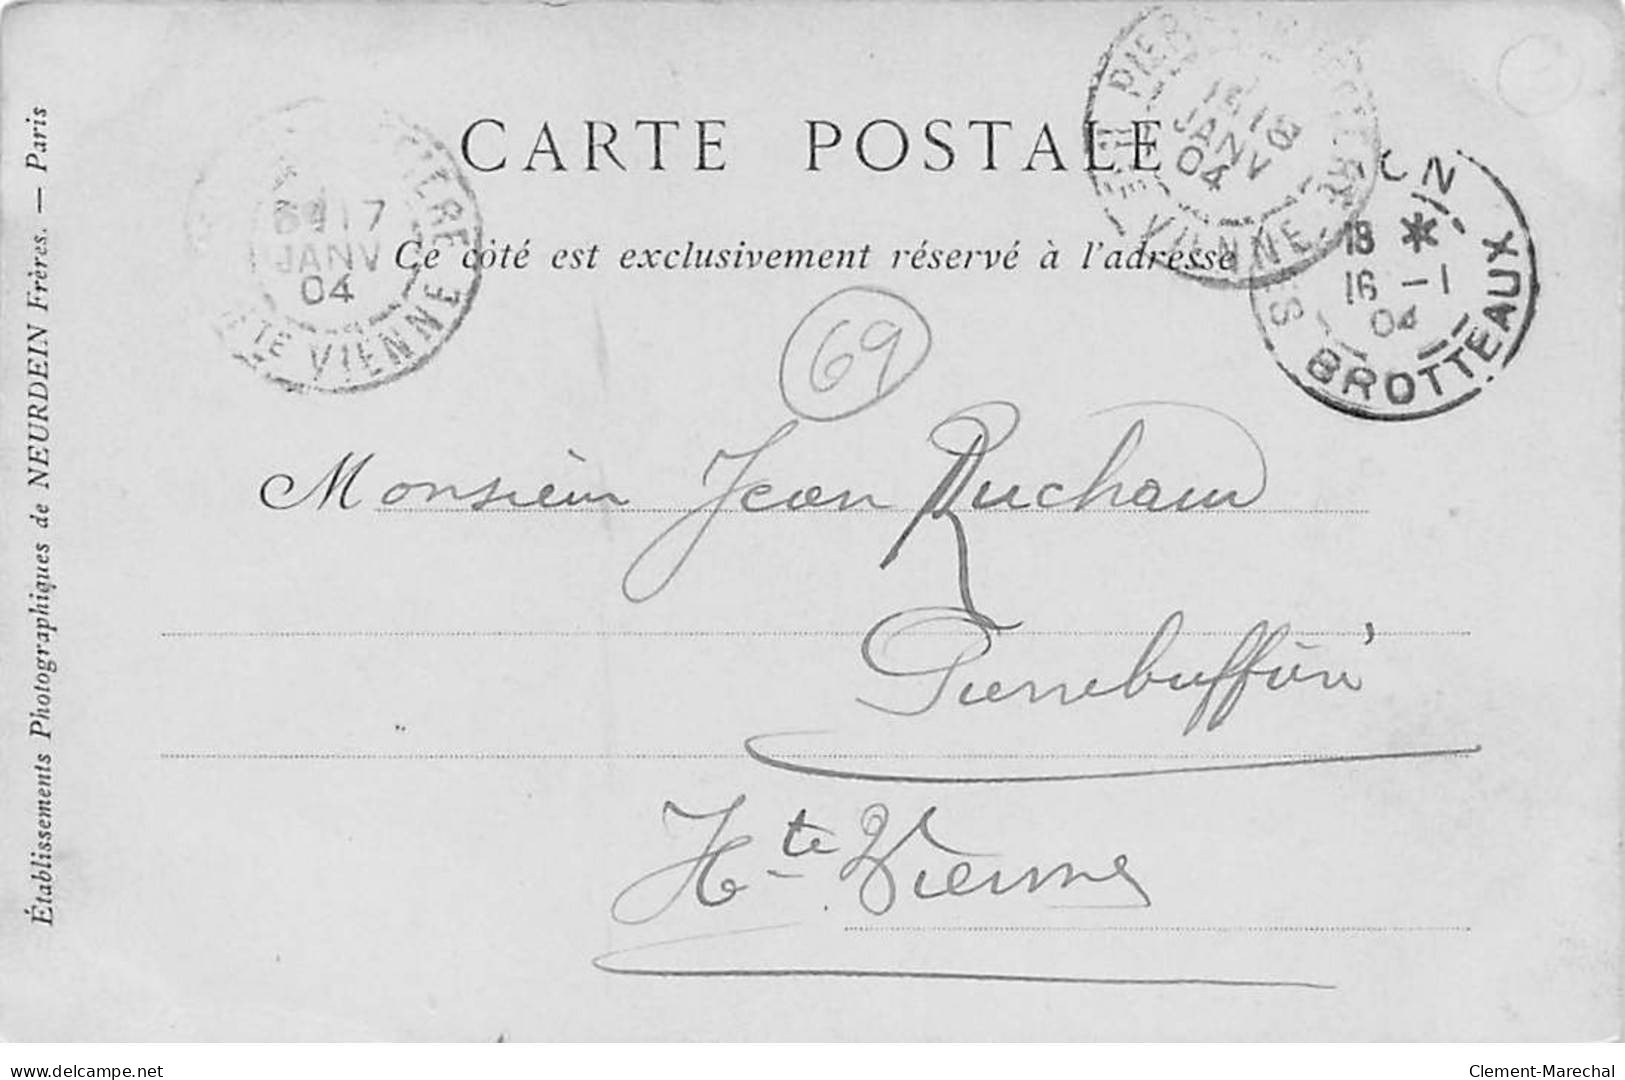 CARTE POSTALE
Ce côté est exclusivement réservé à l'adresse
Établissements Photographiques de NEURDEIN Frères. — Paris
17
JANV
04
TIERE
HTE VIENNE
PIERRE
JANV
04
VIENNE
18 *
16 -1
04
BROTTEAUX
69
Monsieur Jean Ruchaud
Pierrebuffière
Hte Vienne
www.delcampe.net
Clement-Marechal